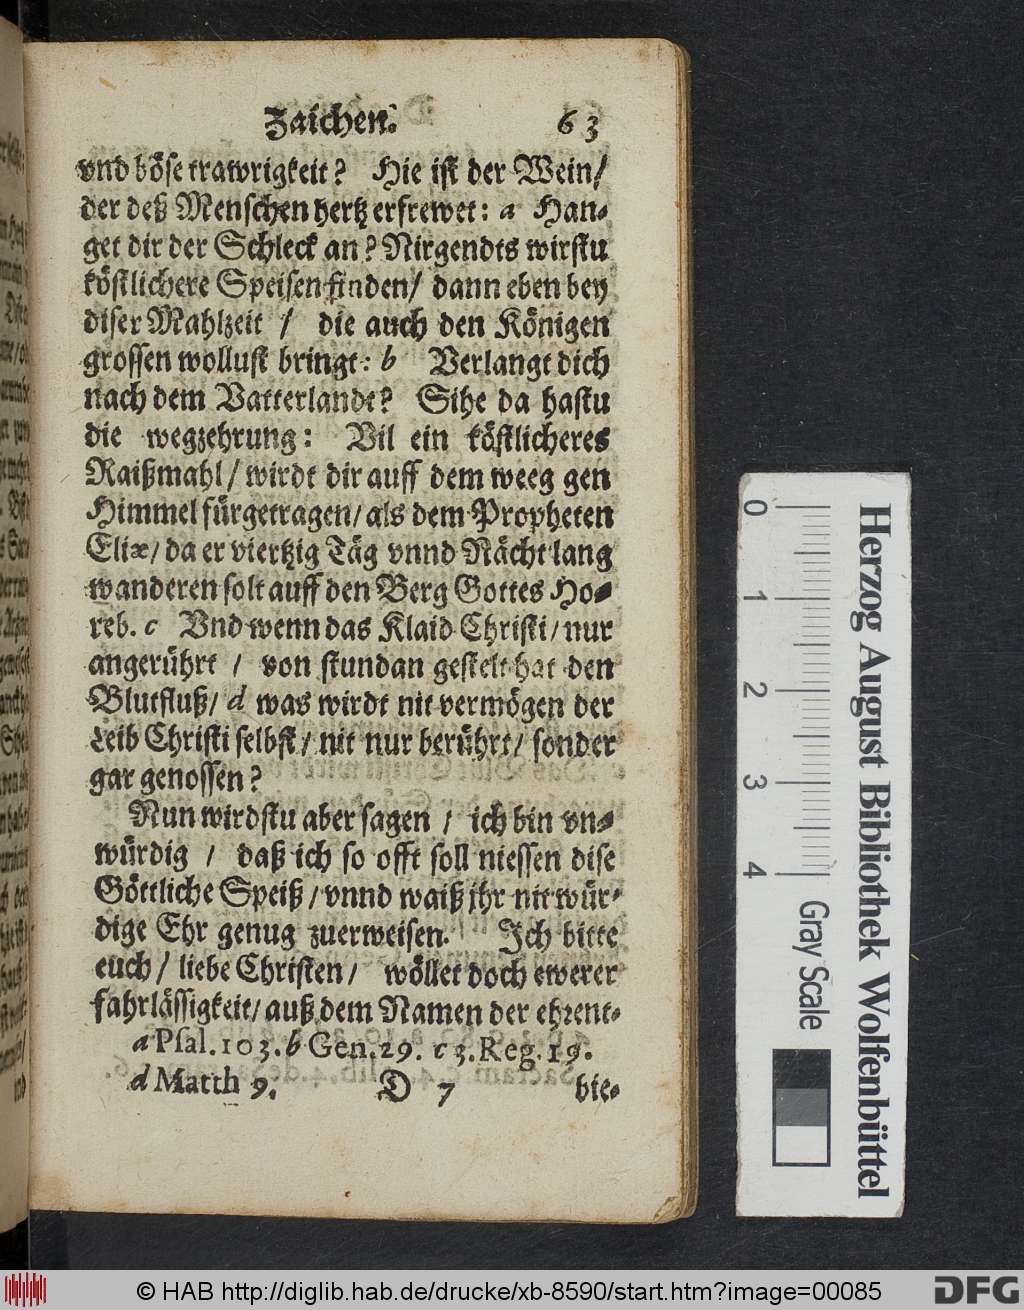 Zaichen. 63
vnd böse trawrigkeit? Hie ist der Wein/
der deß Menschen hertz erfrewet: a Han-
get dir der Schleck an? Nirgendts wirstu
köstlichere Speisen finden/ dann eben bey
diser Mahlzeit / die auch den Königen
grossen wollust bringt: b Verlangt dich
nach dem Vatterlandt? Sihe da hastu
die wegzehrung: Vil ein köstlicheres
Raißmahl/ wirdt dir auff dem weeg gen
Himmel fürgetragen/ als dem Propheten
Eliæ/ da er viertzig Täg vnnd Nächt lang
wanderen solt auff den Berg Gottes Ho-
reb. c Vnd wenn das Klaid Christi/ nur
angerührt / von stundan gestelt hat den
Blutfluß/ d was wirdt nit vermögen der
Leib Christi selbst/ nit nur berührt/ sonder
gar genossen?
Nun wirdstu aber sagen / ich bin vn-
würdig / daß ich so offt soll niessen dise
Göttliche Speiß/ vnnd waiß jhr nit wür-
dige Ehr genug zuerweisen. Ich bitte
euch/ liebe Christen/ wöllet doch ewerer
fahrlässigkeit/ auß dem Namen der ehrent-
a Psal. 103. b Gen. 29. c 3. Reg. 19.
d Matth 9. D 7 bie-
0 1 2 3 4
Gray Scale
Herzog August Bibliothek Wolfenbüttel
© HAB http://diglib.hab.de/drucke/xb-8590/start.htm?image=00085
DFG